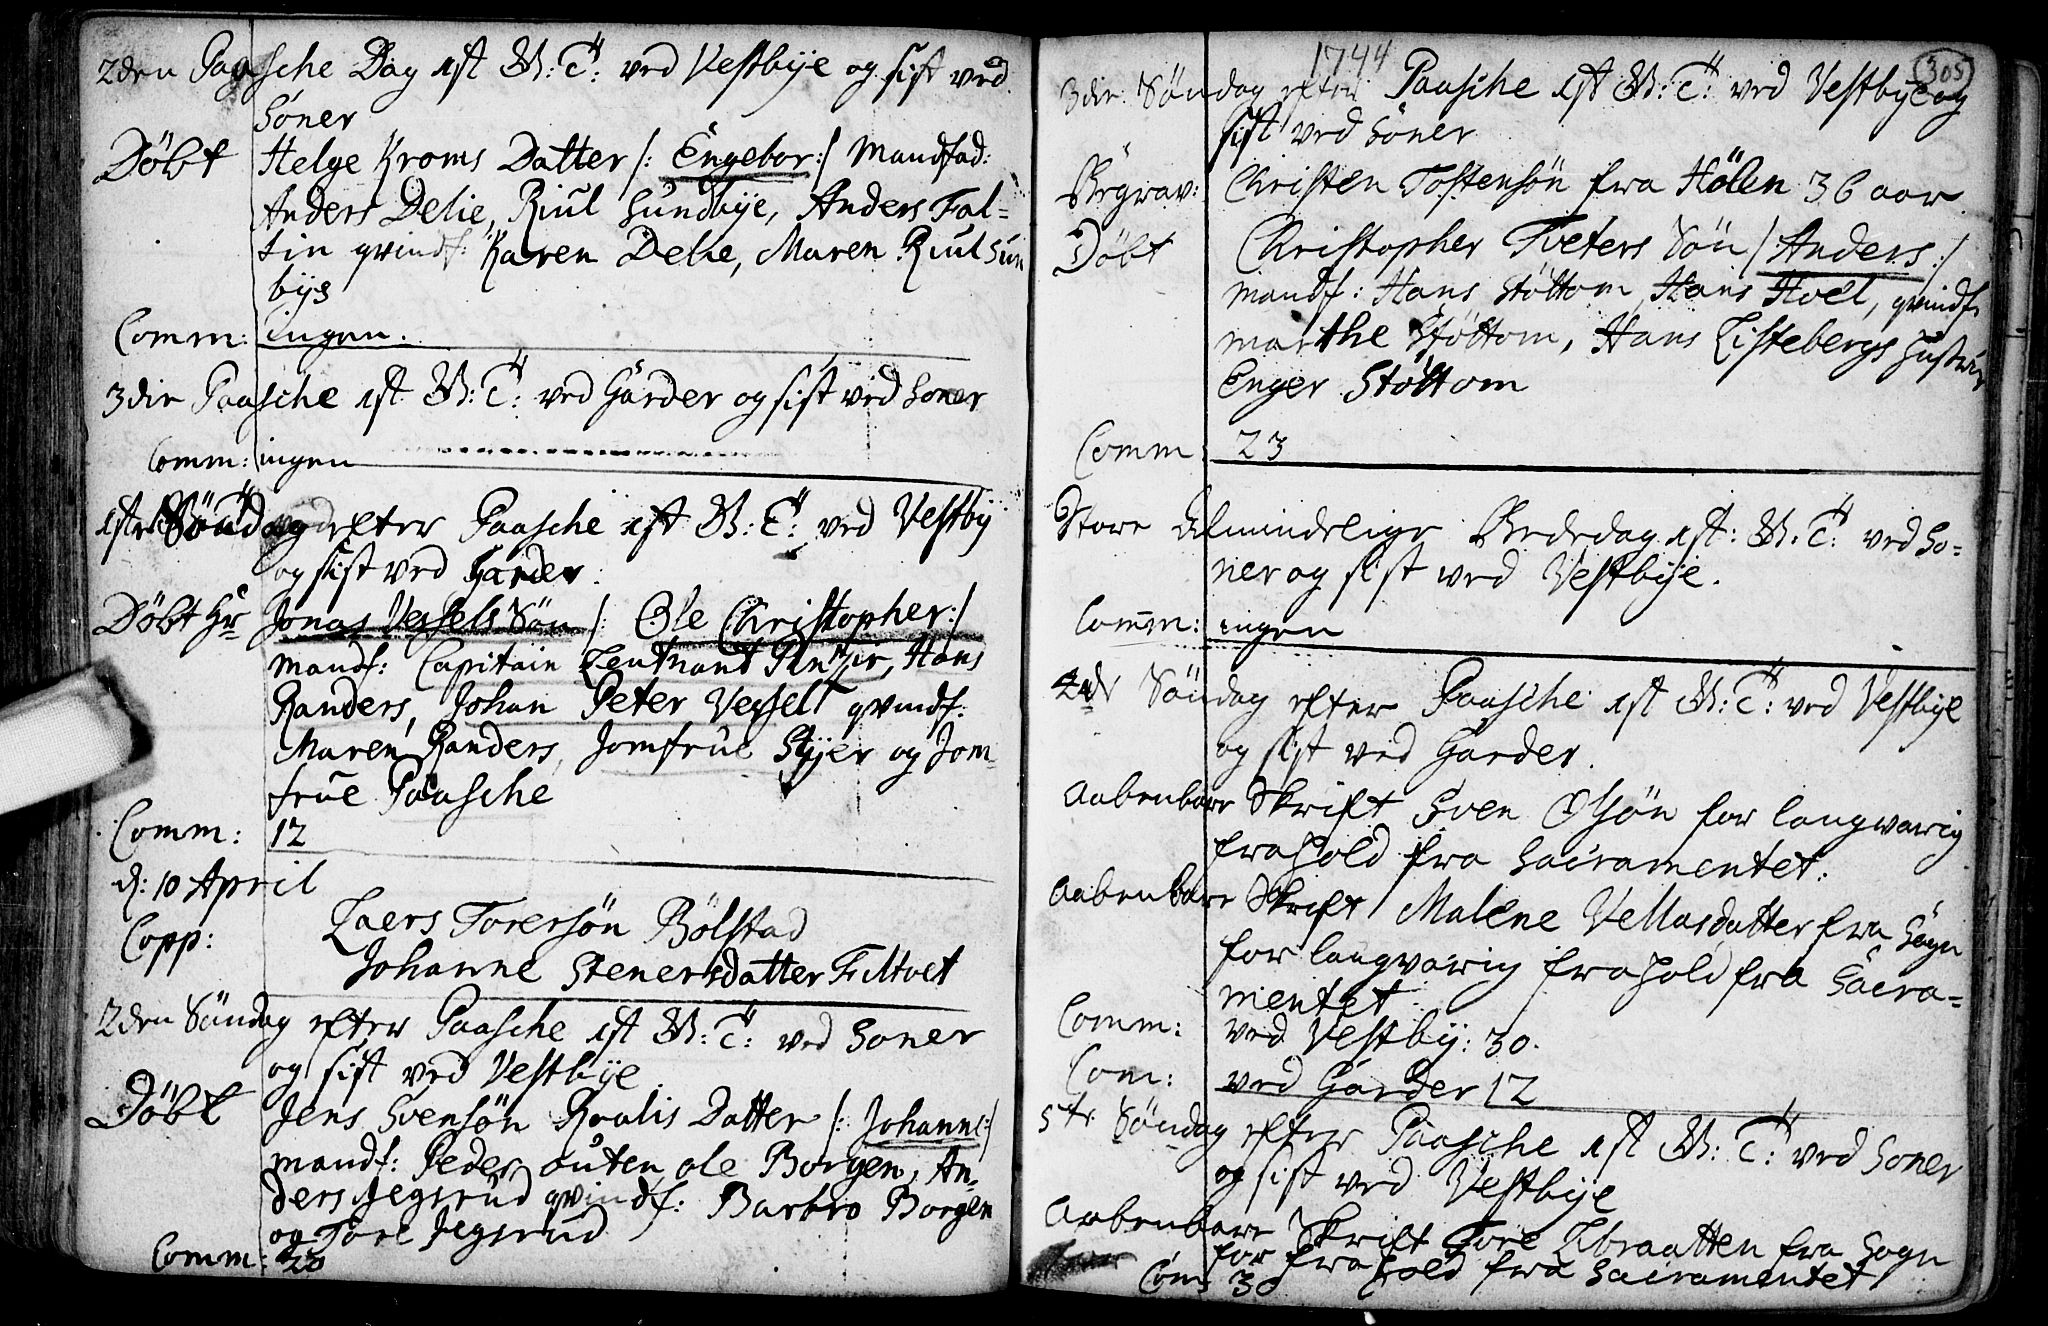 2den Paasche Dag est G: T: ved Vestbÿe og sist ved
Söner
Döbt Helge Kroms Datter /: Engebor :/ Mandfad:
Anders Delie, Riul Sundbÿe, Anders Fal=
tin qvindf: Karen Delie, Maren Riul Sun
bÿe
Comm: ingen.
3die Paasche est G: T: ved Garder og sist ved Soner
Comm: ingen
1ste Söndag efter Paasche est G: T: ved Vestbÿ
og sist ved Garder.
Döbt Hr Jonas Vessels Sön /: Ole Christopher :/
Mandf: Capitain Leutnant, Hans
Randers, Johan Peter Vessell qvindf:
Maren Randers, Jomfrue Stÿer og Jom=
frue Paasche
Comm: 12
d: 10 April
Copp: Laers Torersön Bölstad
Johanne Stenersdatter Filtvet
2den Söndag efter Paasche est G: T: ved Soner
og sist ved Vestbÿe
Döbt Jens Svensön Roalis Datter /: Johanne :/
Mandf: Peder outen, ole Borgen, An=
ders Jegsrud qvindf: Barbro Borgen
og Tore Jegsrud
Comm: 20
1744
305
3die Söndag efter Paasche est G: T: ved Vestbÿe og
sist ved Söner
Begrav: Christen Tostensön fra Hölen 36 aar
Döbt Christopher Tveters Sön /: Anders :/
Mandf: Hans Stöttom, Hans Hoel, qvindf
Marthe Stöttom, Hans Listebergs Hustrue
Enger Stöttom
Comm: 23
Store Almindelige Bededag est: G: T: ved So=
ner og sist ved Vestbÿe.
Comm: ingen
4de Söndag efter Paasche est G: T: ved Vestbÿe
og sist ved Garder.
Aabenbare Skrift Sven Olsön for langvarig
frahold fra Sacramentet:
Aabenbare Skrift Malene Vellasdatter fra Sogn
for langvarig frahold fra Sacra=
mentet
Comm: ved Vestbÿ: 30.
Com: ved Garder 12
5te Söndag efter Paasche est G: T: ved Soner
og sist ved Vestbÿe
Aabenbare Skrift Tore Libraatten fra Sogn
for frahold fra Sacramentet
Com: 30